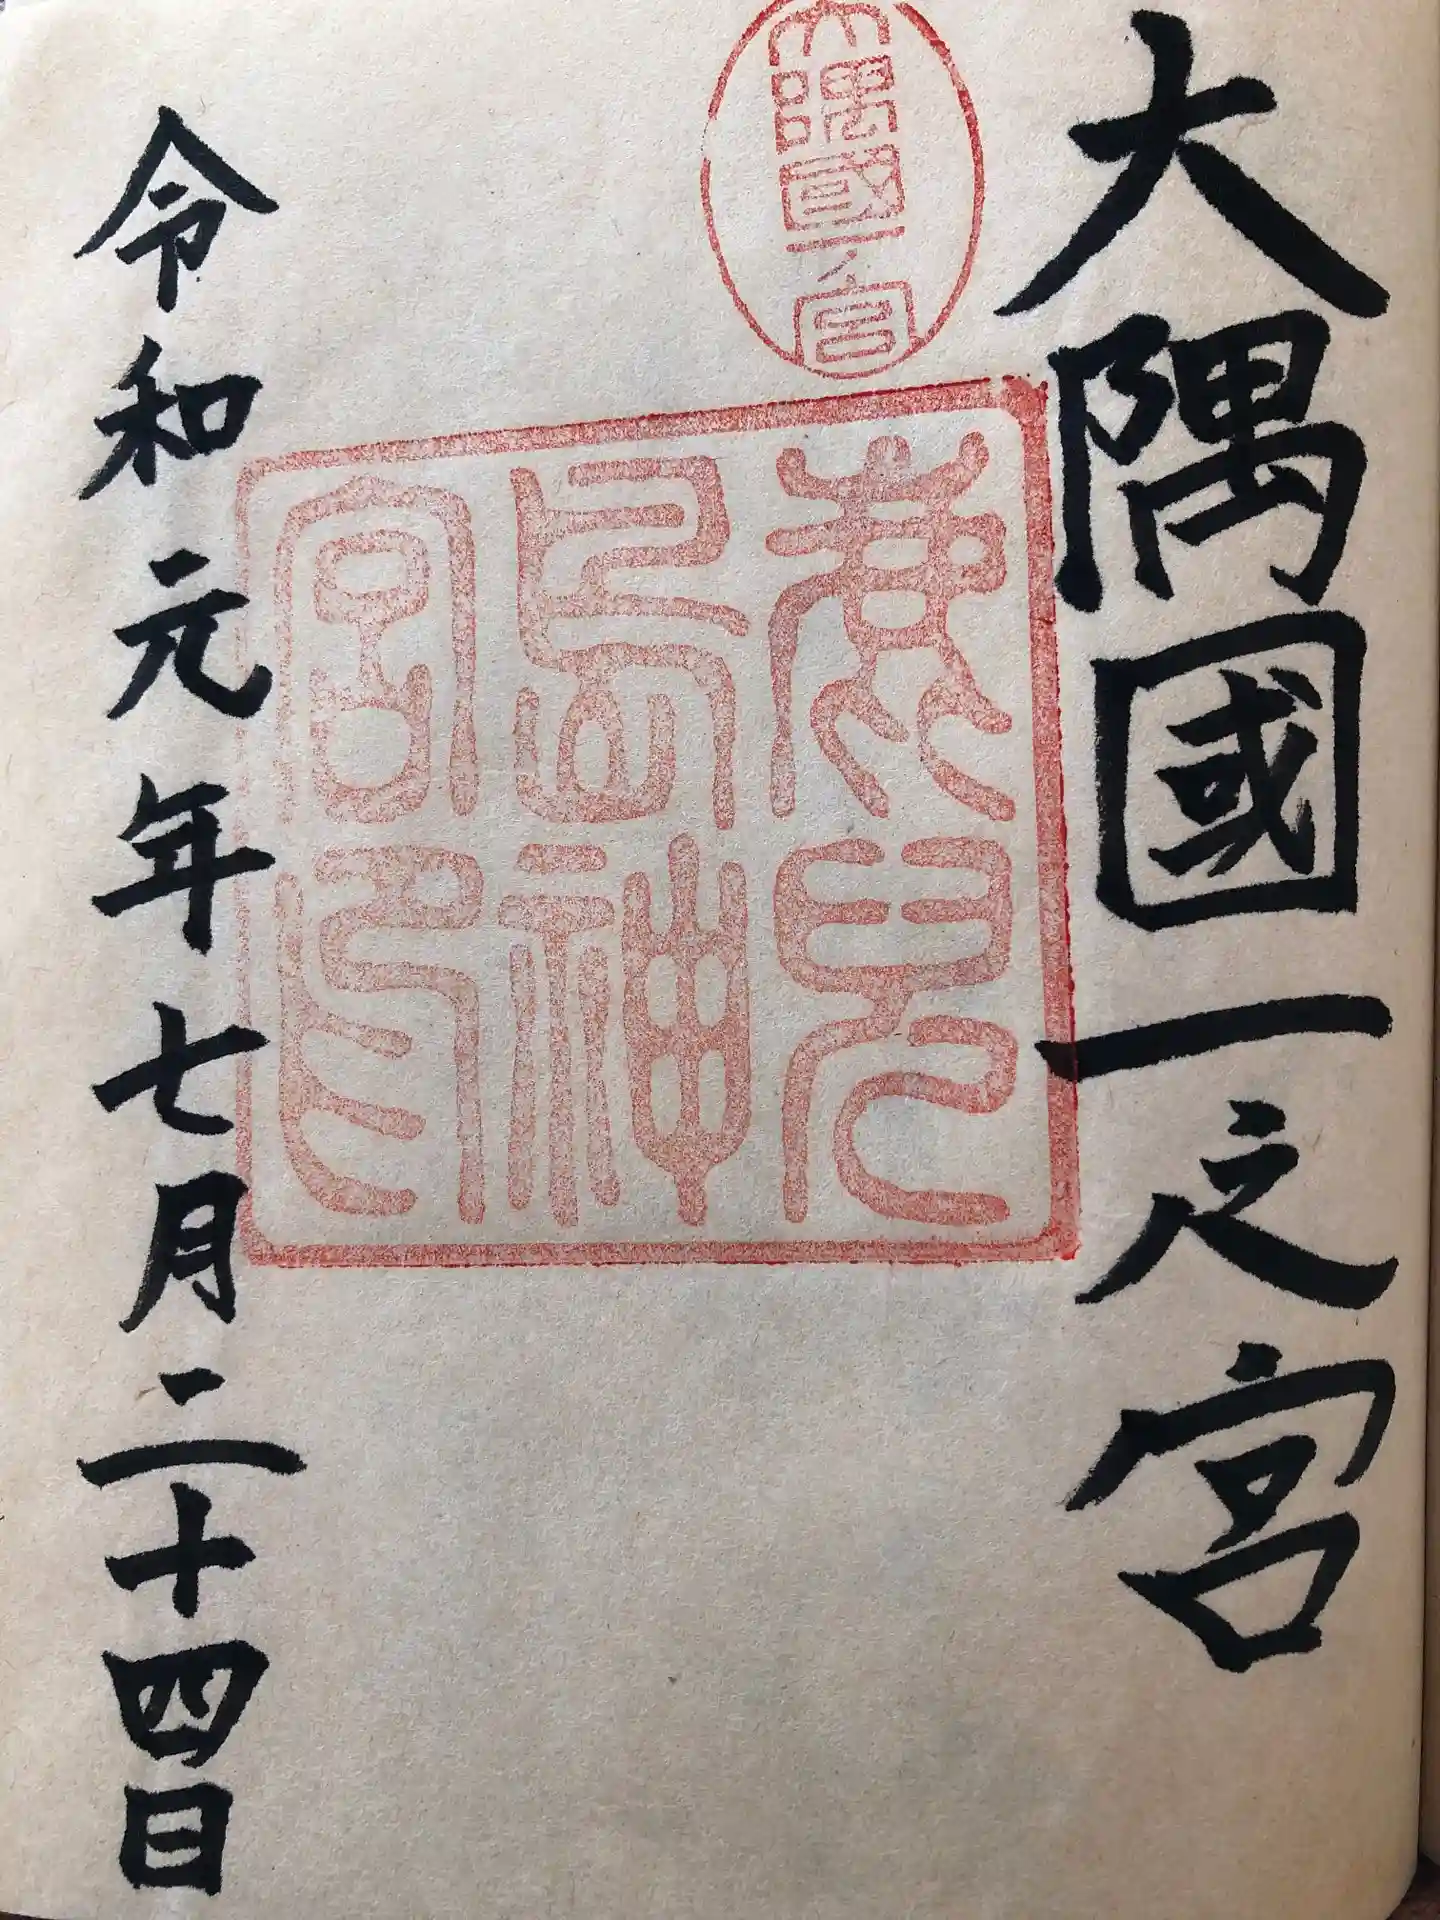 大隅國一之宮
大隅國一之宮
鹿兒
島神
宮印
令和元年七月二十四日